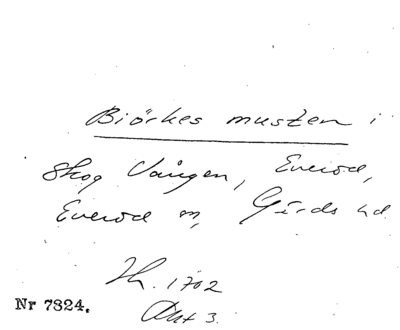 Biörkes musten i
Skog Vången, Everöd,
Everöd sn, Gärds hd
Lh. 1702
Akt 3.
Nr 7324.